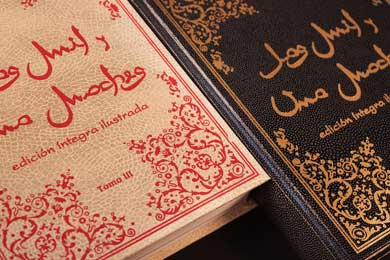 Mil y
Noches
edición Integra ilustrada
Tomo III
Las Mil y
una Noches
edición Integra